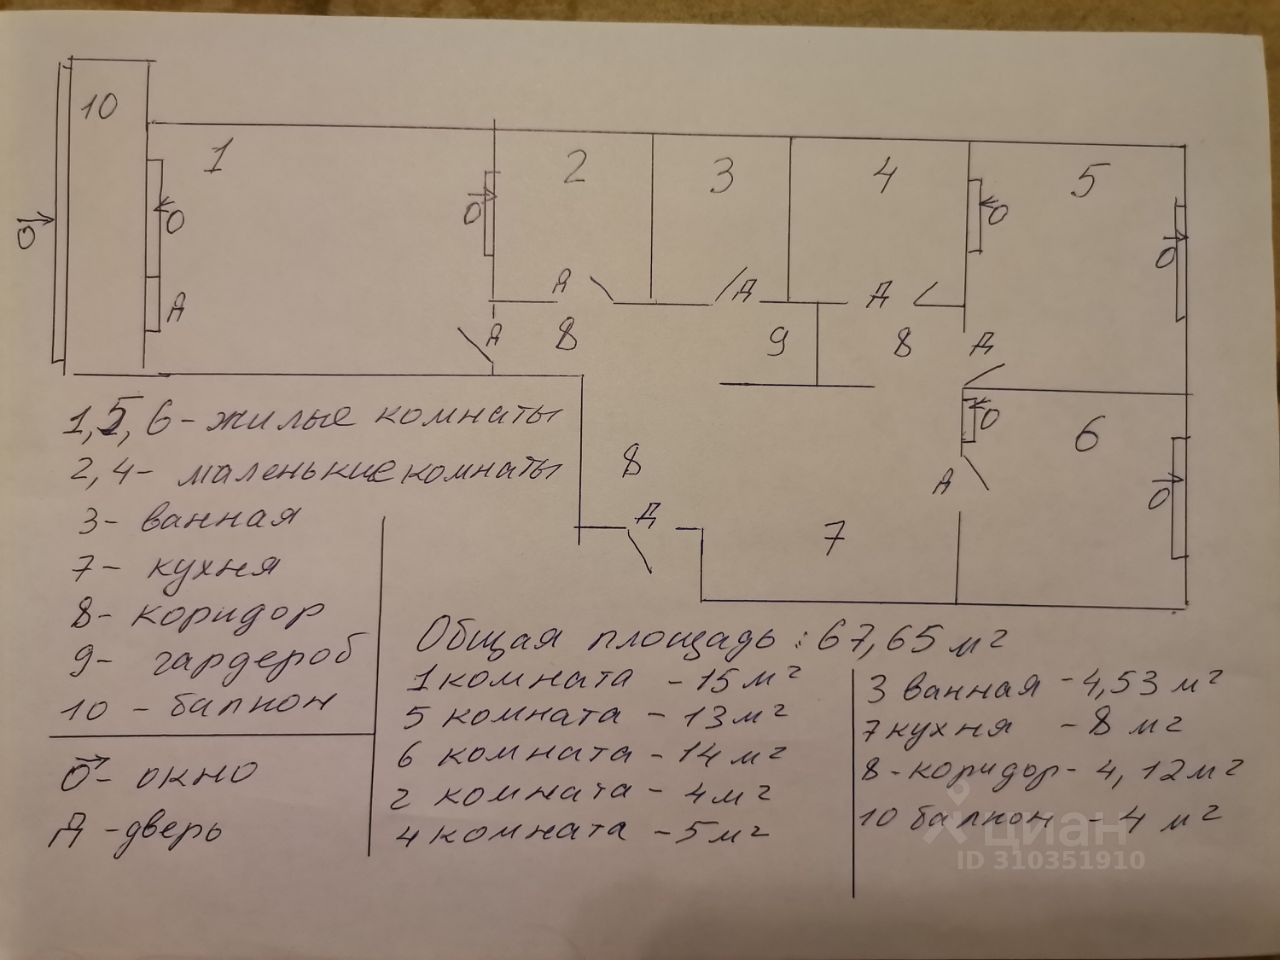 10
1
2
3
4
5
О
О
О
О
О
Д
Д
Д
Д
Д
8
9
8
Д
1, 5, 6 - жилые комнаты
О
6
2, 4 - маленькие комнаты
8
Д
О
3 - ванная
Д
7
7 - кухня
8 - коридор
9 - гардероб
10 - балкон
О - окно
Д - дверь
Общая площадь: 67,65 м2
1 комната - 15 м2
5 комната - 13 м2
6 комната - 14 м2
2 комната - 4 м2
4 комната - 5 м2
3 ванная - 4,53 м2
7 кухня - 8 м2
8 - коридор - 4,12 м2
10 балкон - 4 м2
циан
ID 310351910